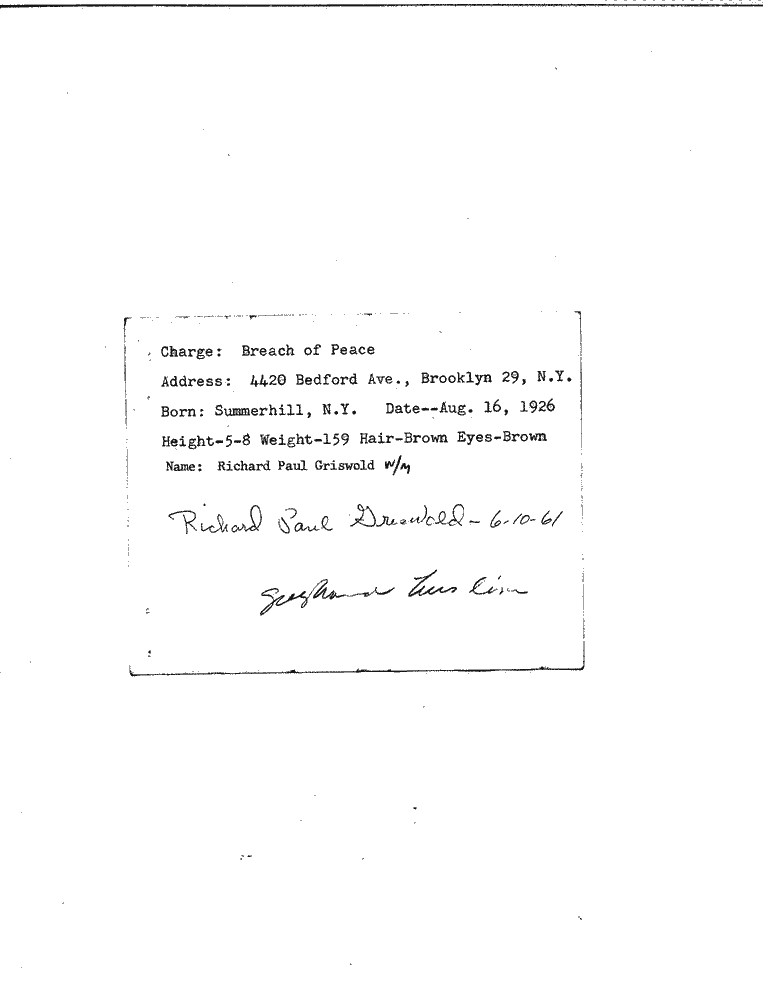 Charge: Breach of Peace
Address: 4420 Bedford Ave., Brooklyn 29, N.Y.
Born: Summerhill, N.Y. Date--Aug. 16, 1926
Height-5-8 Weight-159 Hair-Brown Eyes-Brown
Name: Richard Paul Griswold W/M
Richard Paul Griswold - 6-10-61
Greyhound bus line